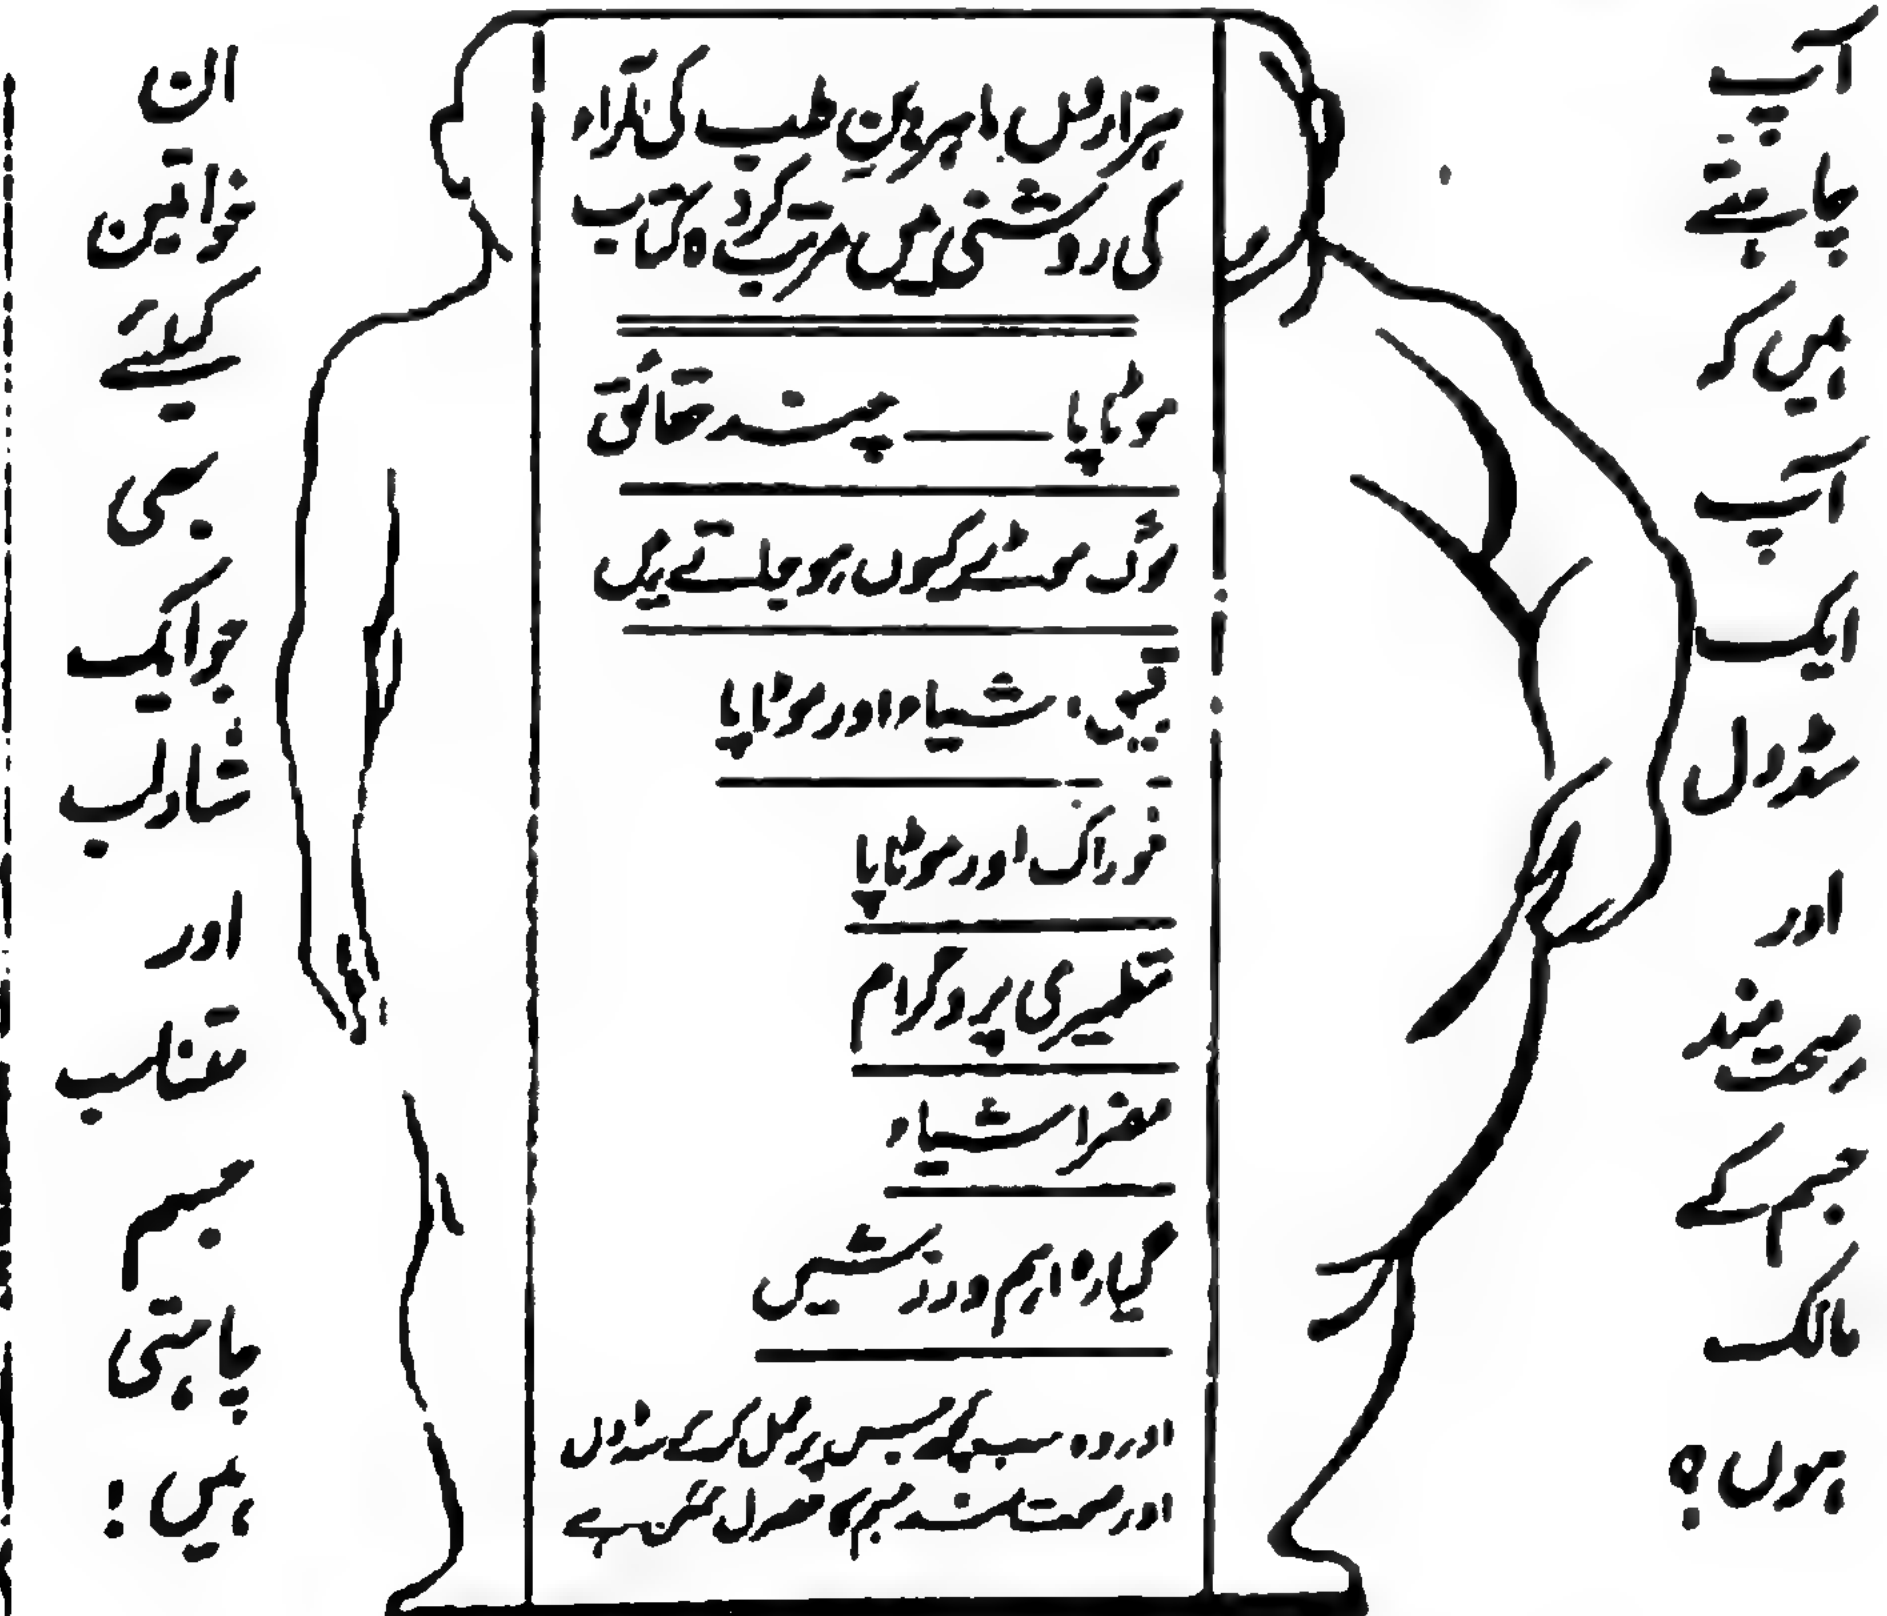 آپ
چاہتے
ہیں کہ
آپ
ایک
سڈول
اور
صحت مند
جسم کے
مالک
ہوں؟
ہزارول ماہرین طب کی آراء
کی روشنی میں مرتب کردہ کتاب
موٹاپا ـــــ چند حقائق
لوگ موٹے کیوں ہو جاتے ہیں
اشیاء اور موٹاپا
خوراک اور موٹاپا
تطہیری پروگرام
مضر اشیاء
گیارہ اہم ورزشیں
اور وہ سب کچھ جس پر عمل کر کے سڈول
اور صحت مند جسم کا حصول ممکن ہے
ان
خواتین
کیلئے
بھی
جو ایک
شاداب
اور
متناسب
جسم
چاہتی
ہیں!